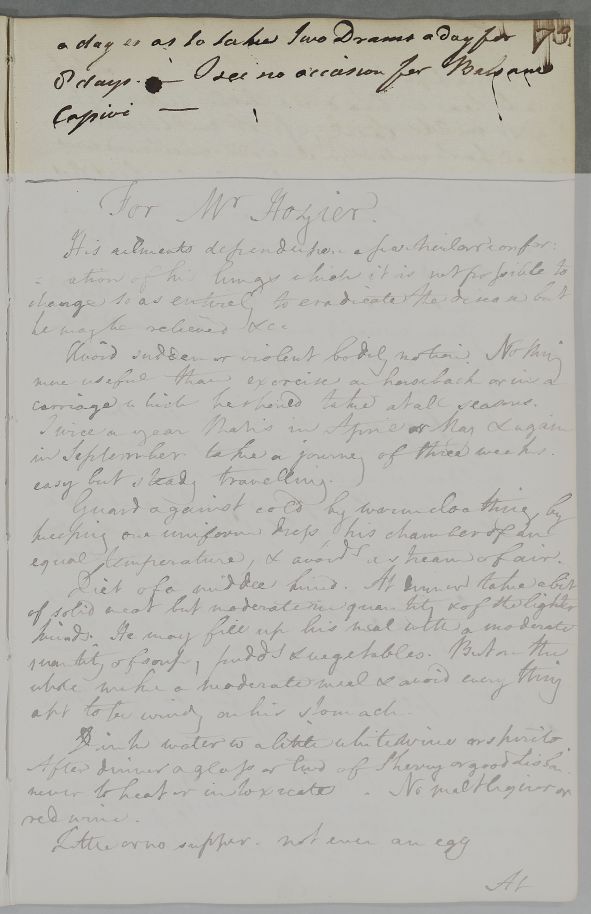 73
a day so as to take Two Drams a day for
8 days. — I see no occasion for Balsam
Capivi —
For Mr Hozier.
His ailments depend upon a particular confor:
ation of his lungs which it is not possible to
change so as entirely to eradicate the disease but
he may be relieved &c.
Avoid sudden or violent bodily motion. Nothing
more useful than exercise on horseback or in a
carriage which he should take at all seasons.
Twice a year that is in April or May & again
in September take a journey of three weeks.
easy but steady travelling.
Guard against cold by warm cloathing, by
keeping one uniform dress, his chamber of an
equal temperature, & avoids a stream of air.
Diet of a middle kind. At dinner take a bit
of solid meat but moderate in quantity & of the lighter
kinds. He may fill up his meal with a moderate
quantity of soup, pudds & vegetables. But on the
whole make a moderate meal & avoid every thing
apt to be windy on his stomach.
Drink water w a little white wine or spirits
After dinner a glass or two of Sherry or good Lisbn
never to heat or intoxicate. No malt liquor or
red wine.
Little or no supper. not even an egg
At